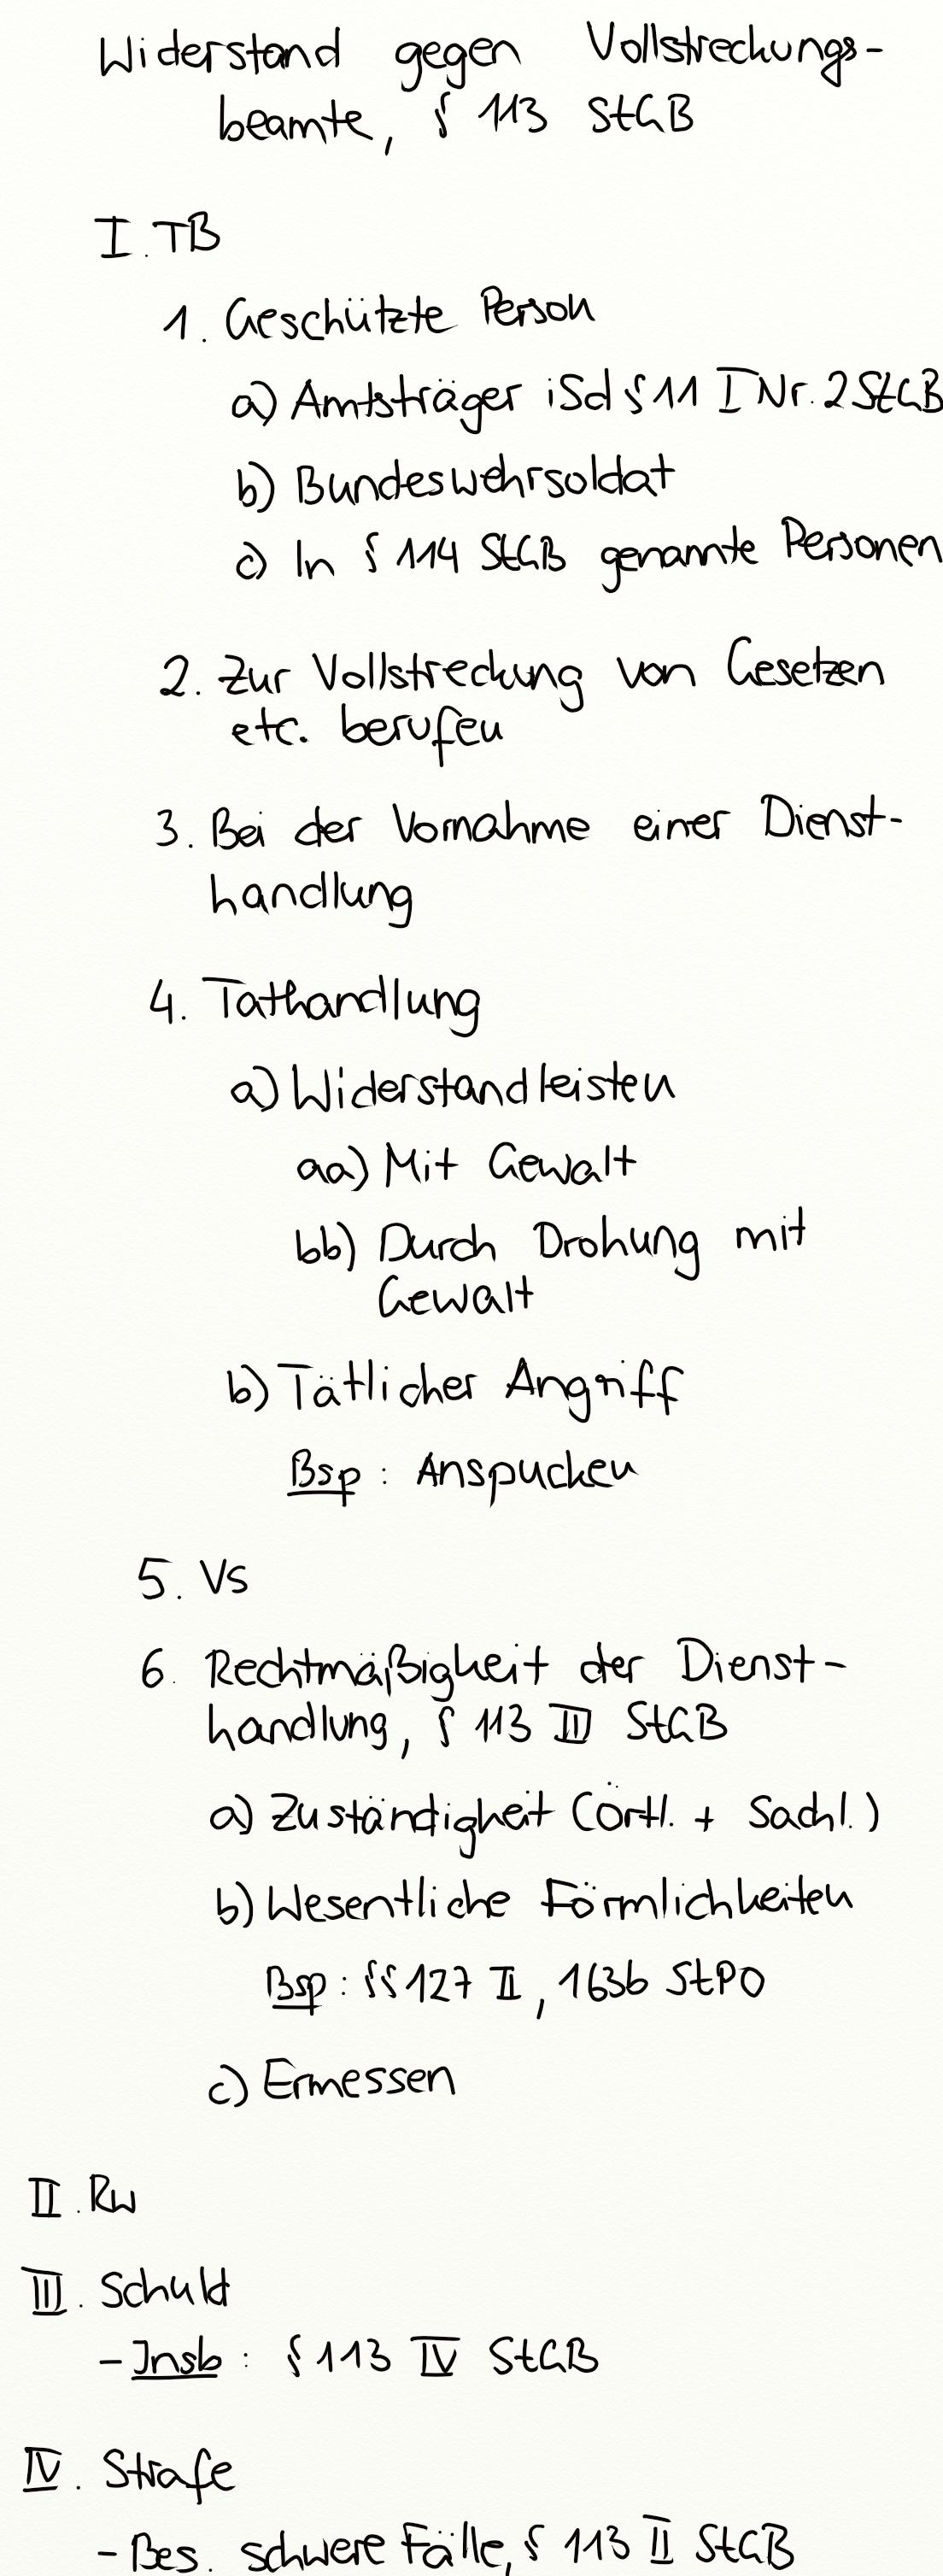 Widerstand gegen Vollstreckungs-
beamte, § 113 StGB
I. TB
1. Geschützte Person
a) Amtsträger iSd § 11 I Nr. 2 StGB
b) Bundeswehrsoldat
c) In § 114 StGB genannte Personen
2. Zur Vollstreckung von Gesetzen
etc. berufen
3. Bei der Vornahme einer Dienst-
handlung
4. Tathandlung
a) Widerstandleisten
aa) Mit Gewalt
bb) Durch Drohung mit
Gewalt
b) Tätlicher Angriff
Bsp: Anspucken
5. Vs
6. Rechtmäßigkeit der Dienst-
handlung, § 113 III StGB
a) Zuständigkeit (örtl. + Sachl.)
b) Wesentliche Förmlichkeiten
Bsp: §§ 127 II, 163b StPO
c) Ermessen
II. Rw
III. Schuld
- Insb: § 113 IV StGB
IV. Strafe
- Bes. schwere Fälle, § 113 II StGB